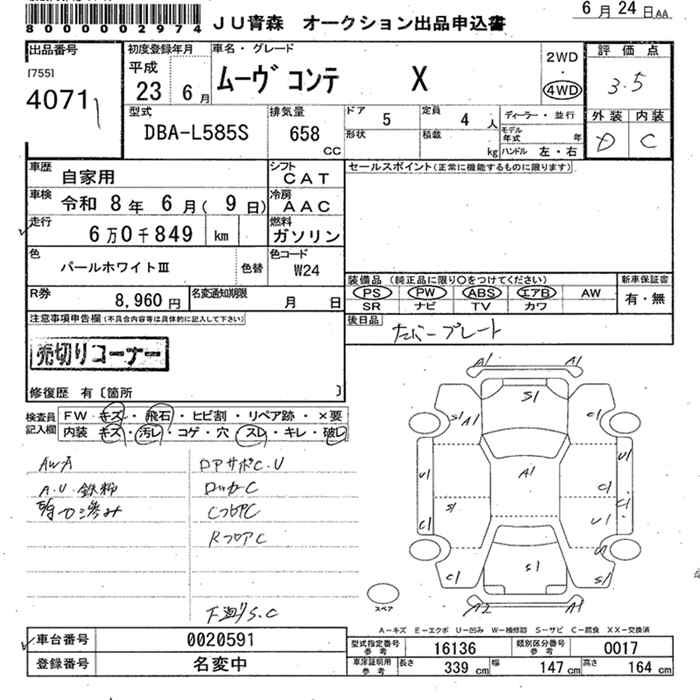 80000002974
JU青森 オークション出品申込書
6月24日AA
出品番号
[755]
4071
初度登録年月
平成
23 6月
車名・グレード
ムーヴ コンテ X
2WD
・
4WD
評価点
3.5
外装 内装
D C
型式
DBA-L585S
排気量
658
cc
ドア 5
定員 4 人
形状
積載 kg
ディーラー・並行
モデル年式 年
ハンドル 左・右
車歴
自家用
シフト
CAT
車検
令和 8年 6月( 9日)
冷房
AAC
走行
6万0千849 km
燃料
ガソリン
色
パールホワイトⅢ
色替
色コード
W24
R券
8,960円
名変通知期限
月 日
セールスポイント(正常に機能するものに限ります)
装備品 (純正品に限り○をつけてください)
PS PW ABS エアB AW
SR ナビ TV カワ
新車保証書
有・無
後日品
ナンバープレート
注意事項申告欄(不具合内容等は具体的に記入して下さい)
売切りコーナー
修復歴 有〔箇所 〕
検査員
記入欄
FW キズ・飛石・ヒビ割・リペア跡・×要
内装 キズ・汚レ・コゲ・穴・スレ・キレ・破レ
AWA
A.U.鉄柳
ドアサポC.U
ロッカーC
CフロアC
RフロアC
下廻りS.C
A1 A1
S1
S1 A1
C1
U1
A1
U1
C1
S1
U1
C1
C1
U1
C1
S1
S1
A2 A1
スペア
A-キズ E-エクボ U-凹み W-補修跡 S-サビ C-腐食 XX-交換済
車台番号
0020591
登録番号
名変中
型式指定番号
参考
16136
類別区分番号
参考
0017
車庫証明用
参考
長さ 339cm
幅 147cm
高さ 164cm